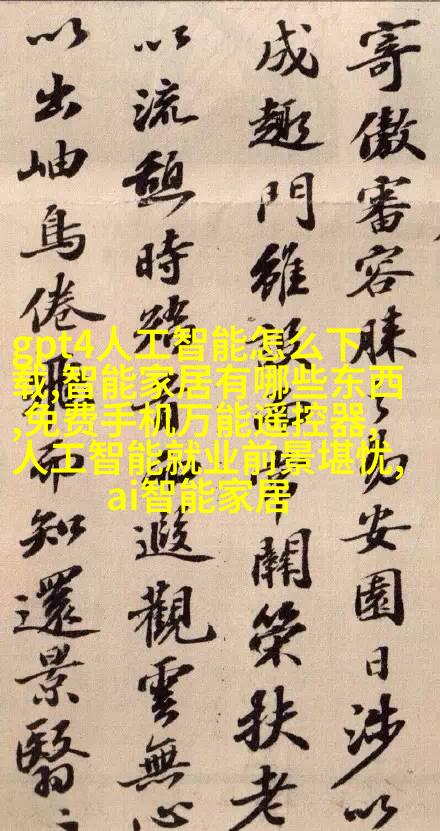 寄傲審容膝之易安園日涉以
成趣門雖設而常關策扶老
以流憩時矯首而遐觀雲無心
以出岫鳥倦飛而知還景翳
gpt4人工智能怎么下
载,智能家居有哪些东西
,免费手机万能遥控器,
人工智能就业前景堪忧,
ai智能家居